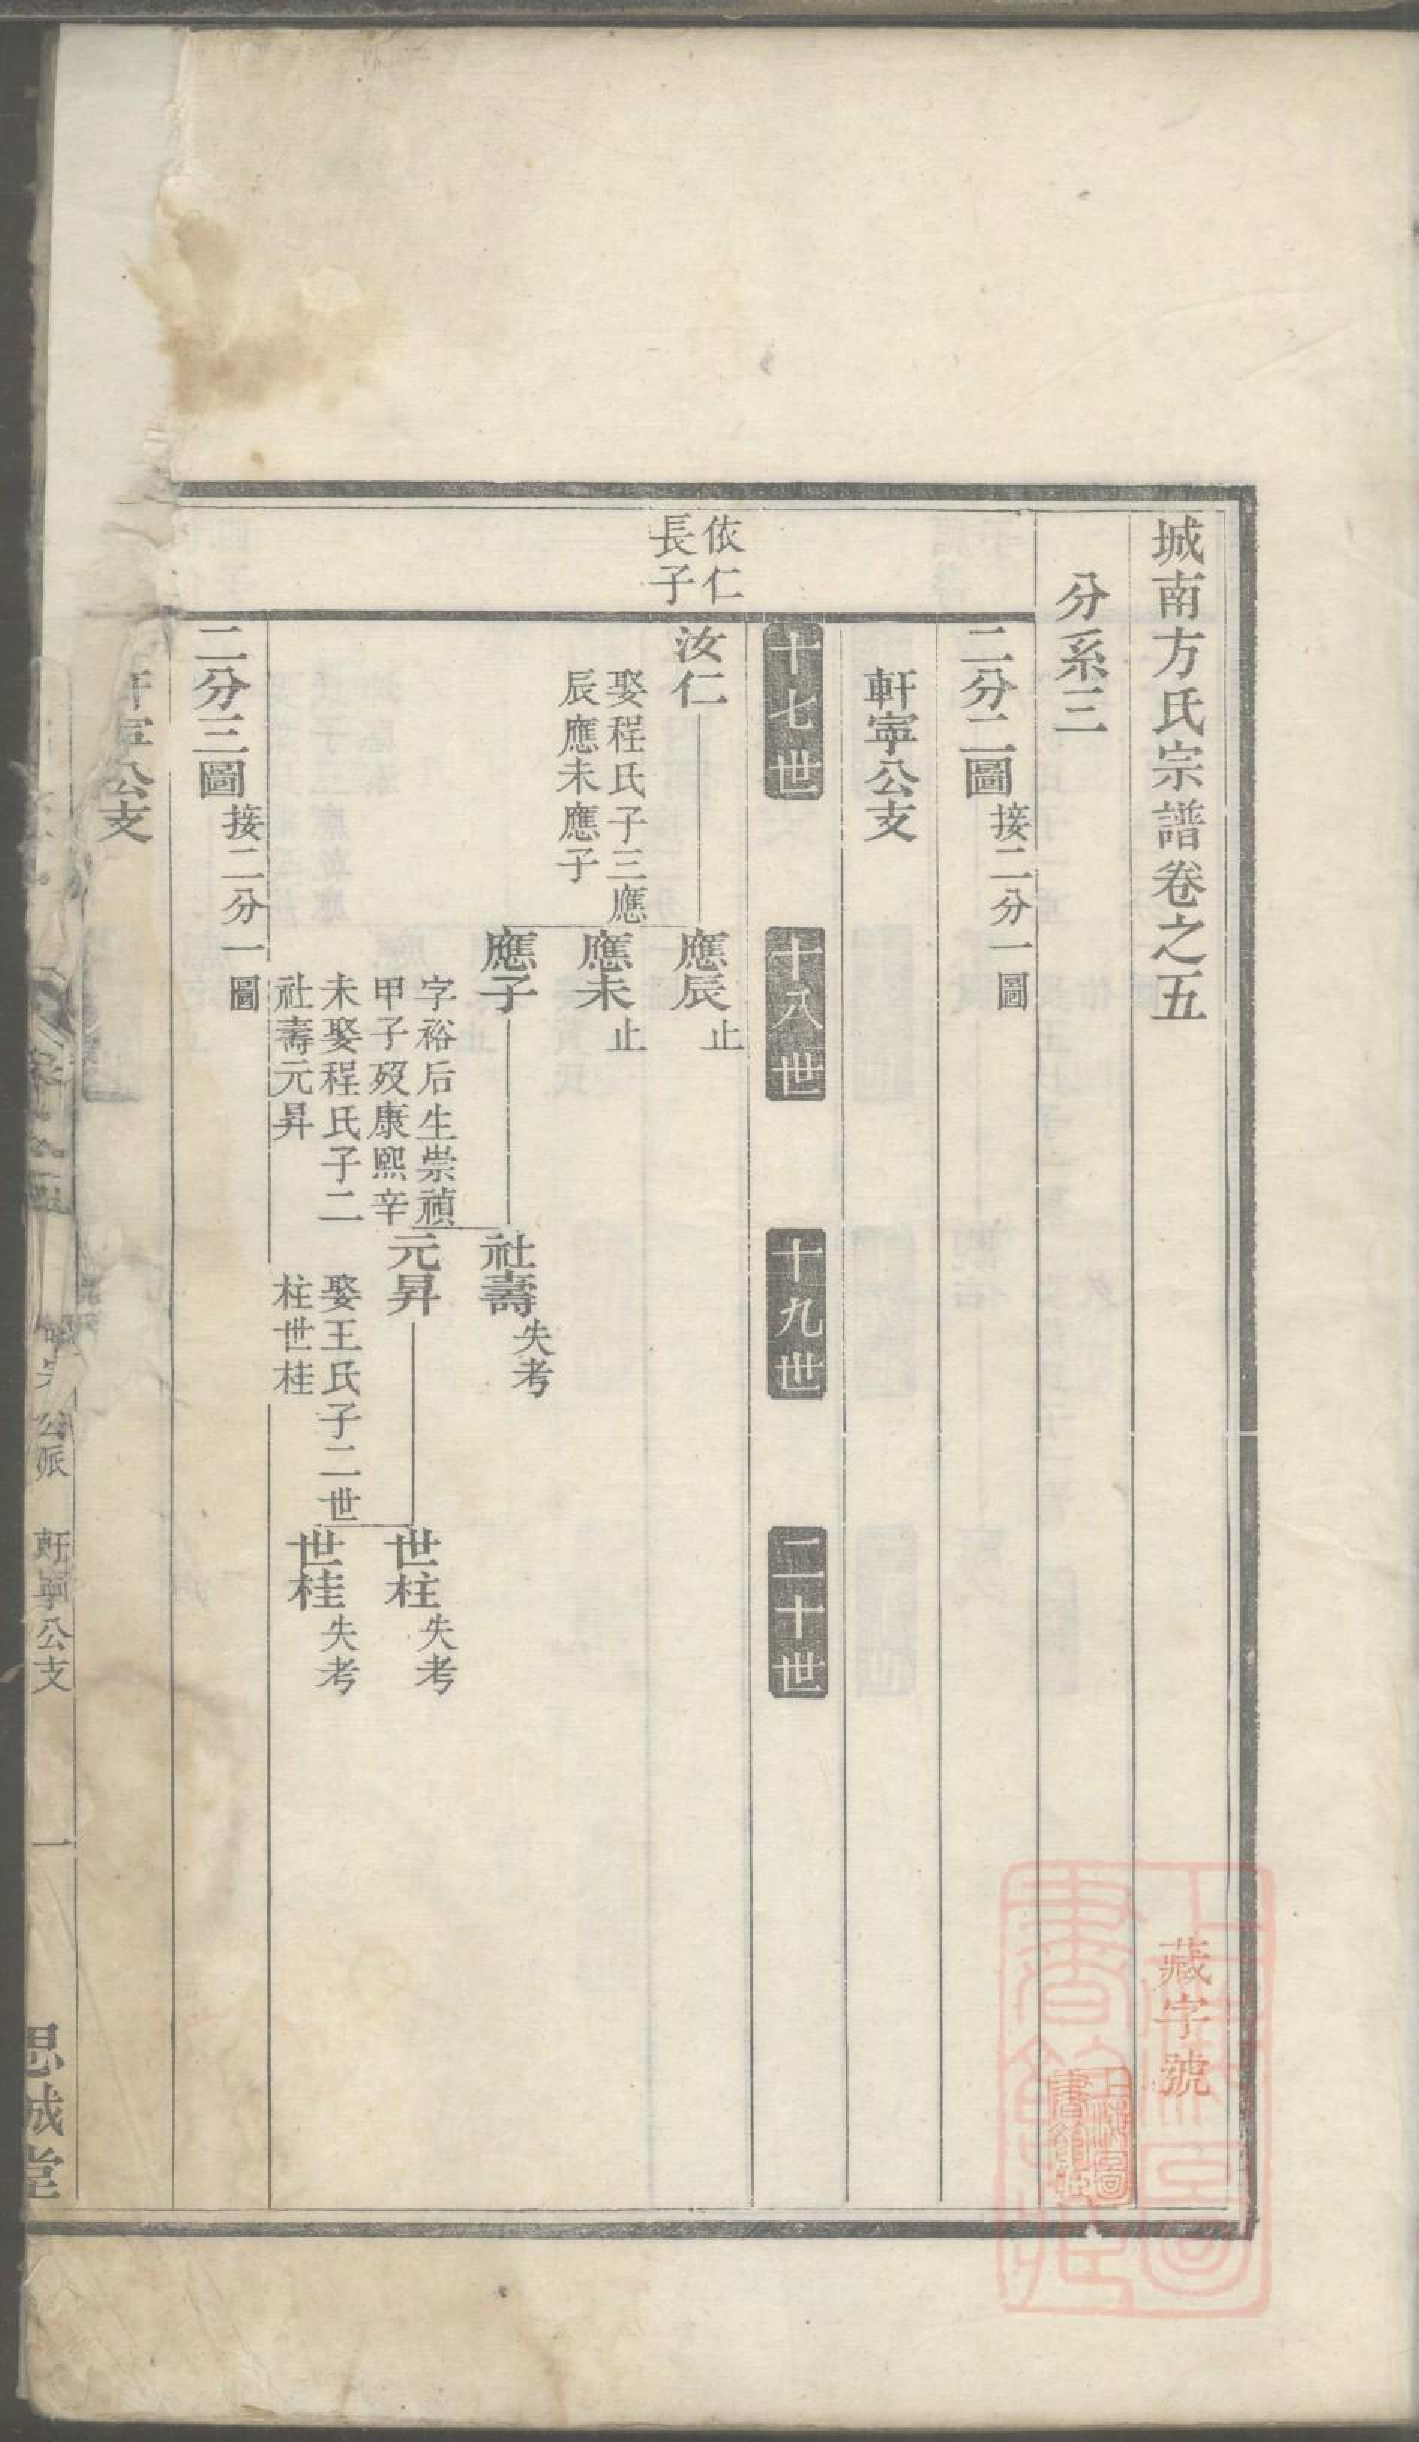 城南方氏宗譜卷之五
藏字號
分系三
二分二圖接二分一圖
軒寧公支
十七世
十八世
十九世
二十世
依仁
長子
汝仁
娶程氏子三應
辰應未應子
應辰止
應未止
應子
字裕后生崇禎
甲子歿康熙辛
未娶程氏子二
社壽元昇
社壽失考
元昇
娶王氏子二世
柱世桂
世柱失考
世桂失考
二分三圖接二分一圖
軒寧公支
公派
軒寧公支
一
思誠堂
上海圖書館藏